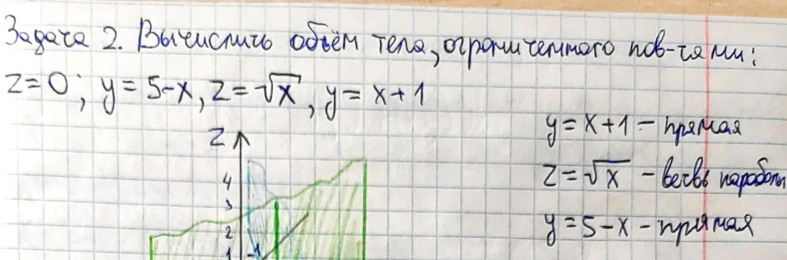 Задача 2. Вычислить объём тела, ограниченного пов-тями:
z=0; y=5-x, z=√x, y=x+1
y=x+1 - прямая
z=√x - ветвь параболы
y=5-x - прямая
z
4
3
2
1
1